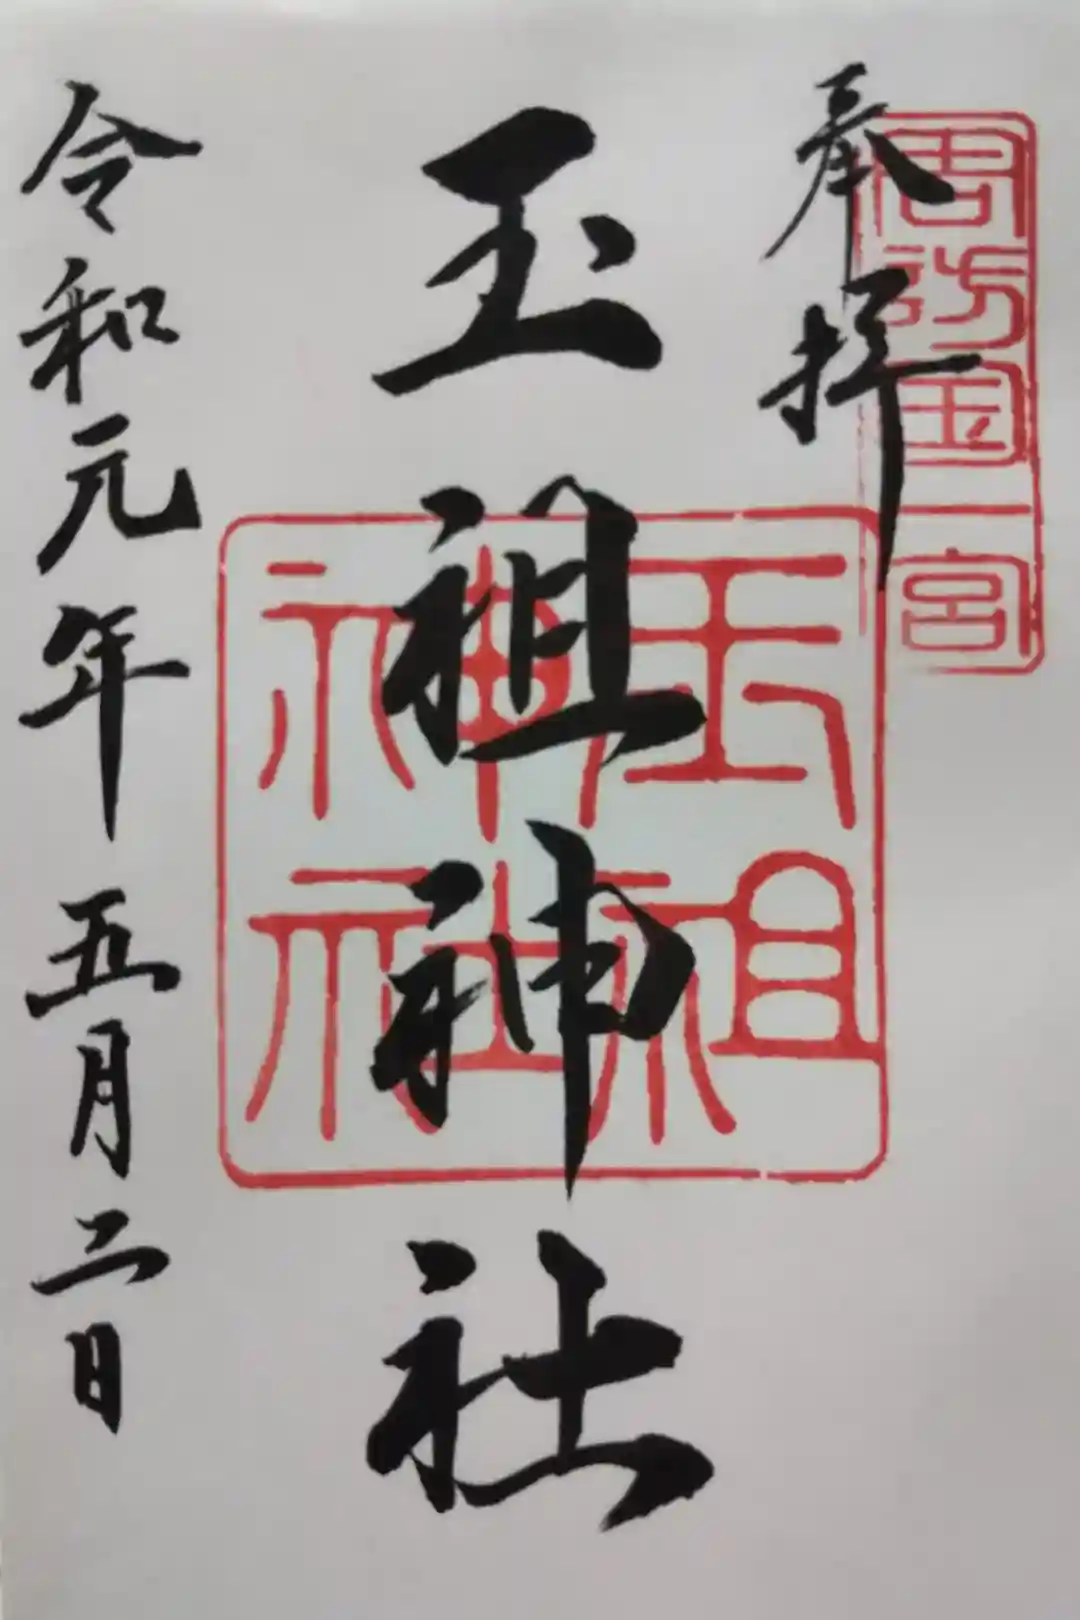 奉拝
周防国一宮
玉祖神社
玉祖
神社
令和元年五月二日